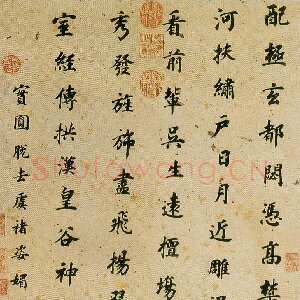 配極玄都閟憑高禁
河扶繡戶日月近雕
看前輩吳生遠擅場
秀發旌旆盡飛揚翠
室經傳拱漢皇谷神
寶圓脫去虞褚姿媚
Shufawang.CN